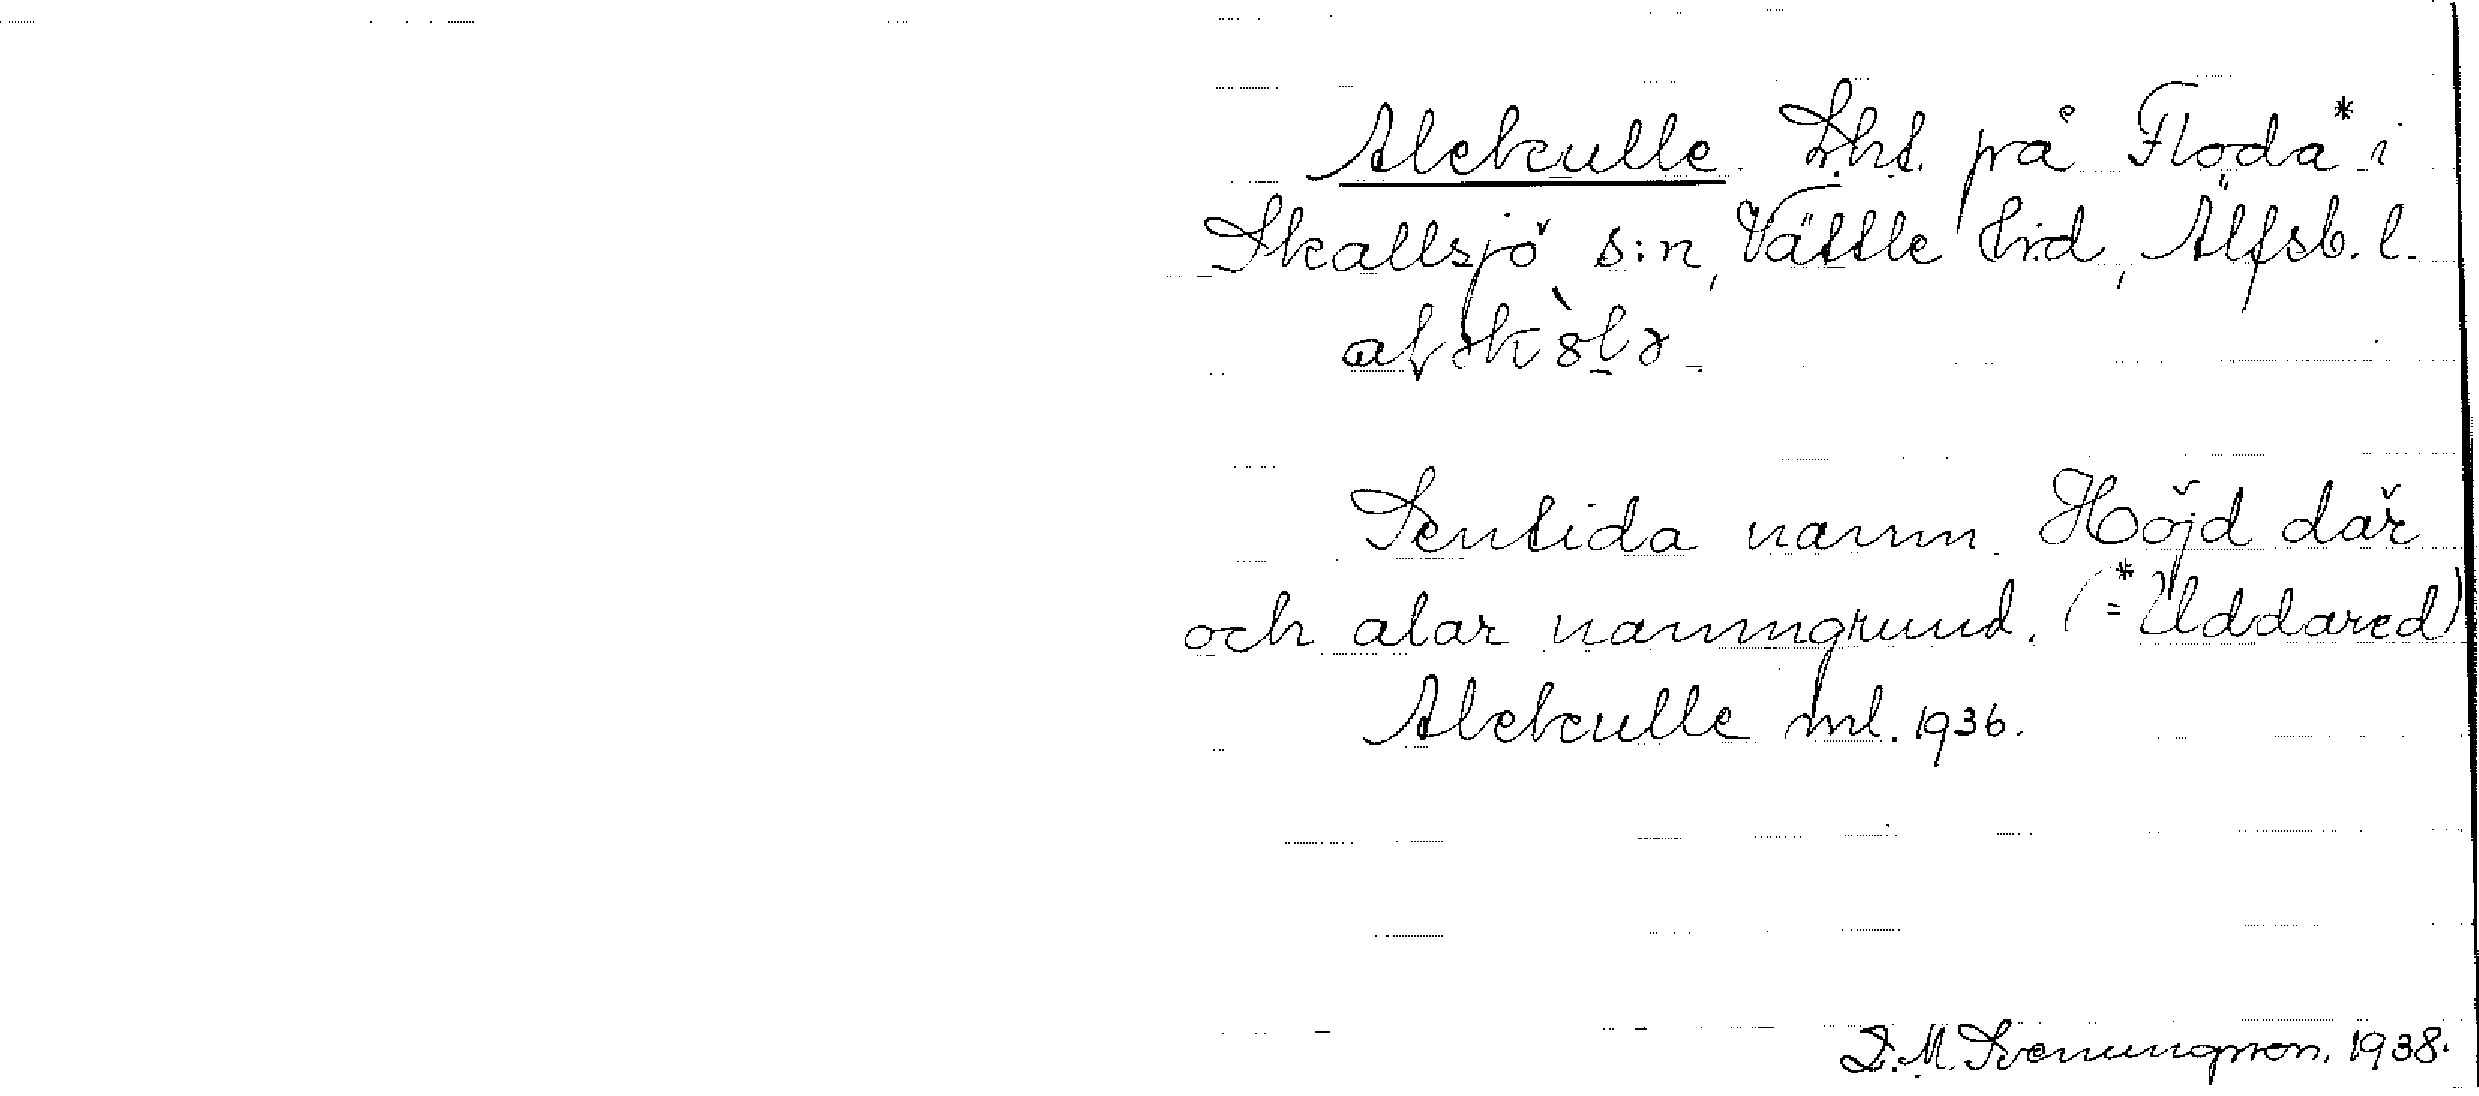 Alekulle. Lht. på Floda* i
Skallsjö s:n, Vättle hrd, Älfsb. l.
Sentida namn. Höjd där
och alar namngrund. (*= Uddared)
Alekulle ml. 1936.
D. M. Svenungsson. 1938.